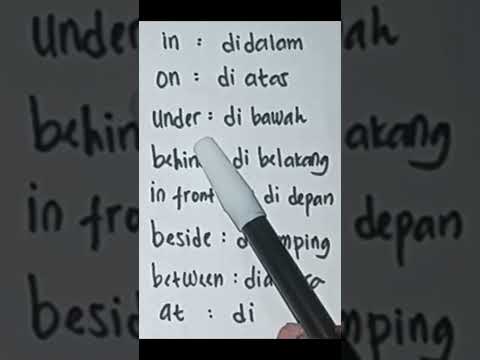 in : didalam
on : di atas
under : di bawah
behin di belakang
in front di depan
beside :
between :
at : di